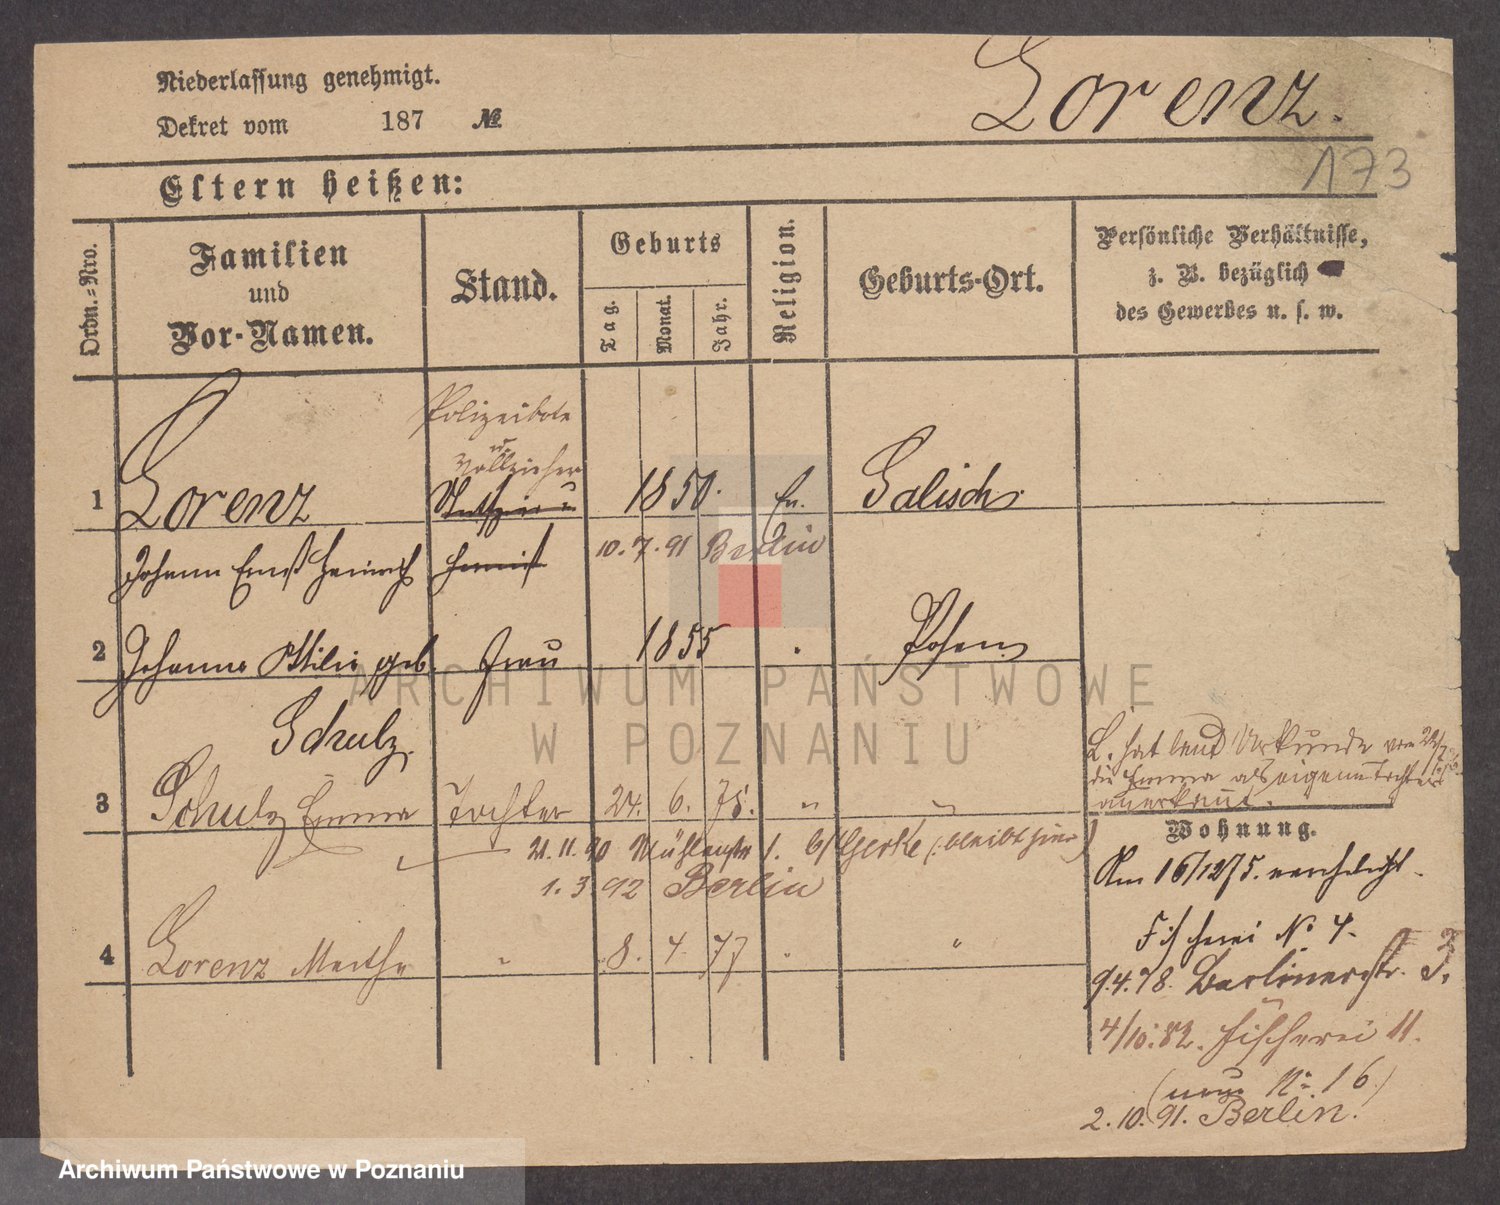 Niederlassung genehmigt.
Dekret vom 187 №
Lorenz.
173
Eltern heißen:
Ordn.=Nro.
Familien
und
Vor-Namen.
Stand.
Geburts
Tag.
Monat.
Jahr.
Religion.
Geburts-Ort.
Persönliche Verhältnisse,
z. B. bezüglich
des Gewerbes u. s. w.
Polizeibote
u.
Vollzieher
1 Lorenz 1850. Ev. Galisch.
Johann Ernst Heinrich
10. 7. 91 Berlin
2 Johanna Ottilie geb. Frau 1855 Posen
Schulz.
L. hat laut Urkunde vom
die Emma als eigene Tochter
anerkannt.
3 Schulz Emma Tochter 24. 6. 75. " "
21. 11. 90 Mühlenstr 1. b/ Gerke (bleibt hier)
1. 3. 92 Berlin
4 Lorenz Martha " 8. 4. 77 "
Wohnung.
Am 16/12 75. verehelicht.
Fischerei No 4.
9.4.78. Berlinerstr. 3.
4/10. 82. Fischerei 11.
(neue No 16)
2. 10. 91. Berlin.
ARCHIWUM PAŃSTWOWE
W POZNANIU
Archiwum Państwowe w Poznaniu